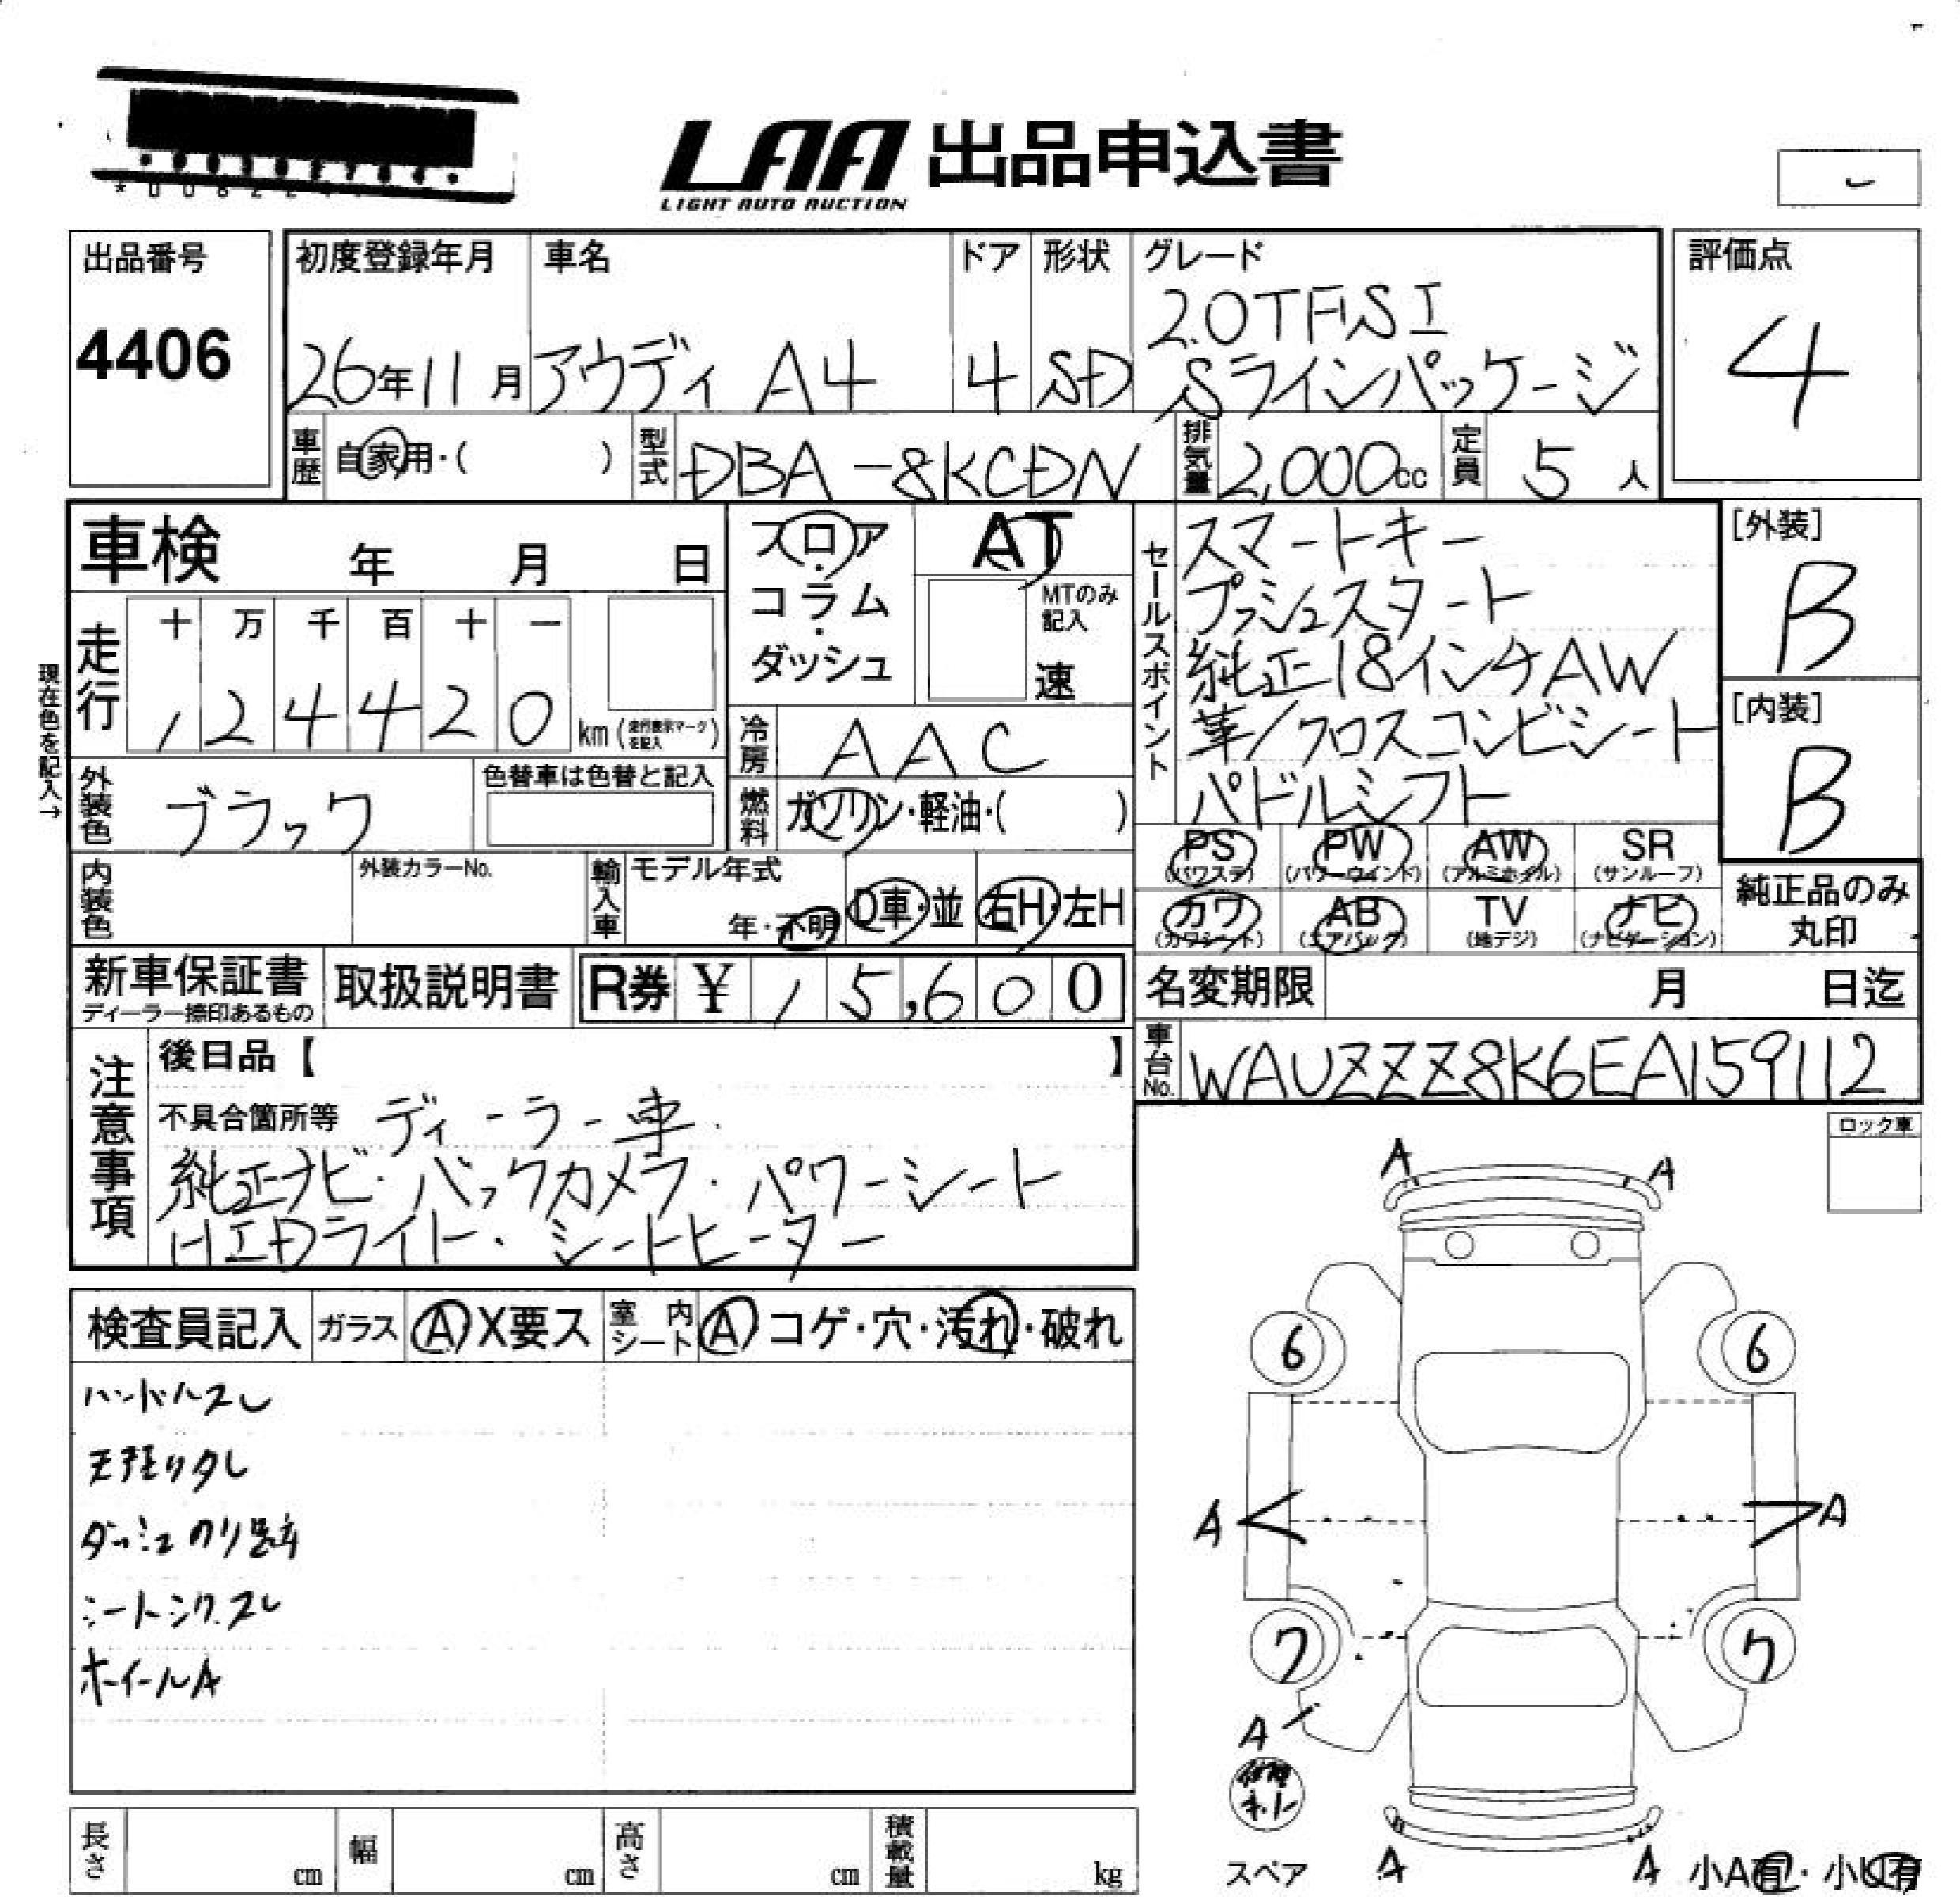 LAA 出品申込書
LIGHT AUTO AUCTION
出品番号
4406
初度登録年月
26年11月
車名
アウディ A4
ドア
4
形状
SD
グレード
2.0TFSI
Sラインパッケージ
評価点
4
車歴
自家用・( )
型式
DBA-8KCDN
排気量
2,000cc
定員
5人
車検 年 月 日
フロア
・
コラム
・
ダッシュ
AT
MTのみ
記入
速
セールスポイント
スマートキー
プッシュスタート
純正18インチAW
革/クロスコンビシート
パドルシフト
[外装]
B
[内装]
B
現在色を記入→
走行
十 万 千 百 十 一
1 2 4 4 2 0 km (走行表示マークを記入)
冷房
AAC
燃料
ガソリン・軽油・( )
外装色
ブラック
色替車は色替と記入
内装色
外装カラーNo.
輸入車
モデル年式
年・不明
D車・並
右H・左H
PS
(パワステ)
PW
(パワーウインド)
AW
(アルミホイル)
SR
(サンルーフ)
カワ
(カワシート)
AB
(エアバッグ)
TV
(地デジ)
ナビ
(ナビゲーション)
純正品のみ
丸印
新車保証書
ディーラー捺印あるもの
取扱説明書
R券 ¥ 15,600
名変期限 月 日迄
車台No.
WAUZZZ8K6EA159112
注意事項
後日品【 】
不具合箇所等 ディーラー車.
純正ナビ・バックカメラ・パワーシート
HIDライト・シートヒーター
ロック車
検査員記入
ガラス
A X要ス
室内シート
A コゲ・穴・汚れ・破れ
ハンドルスレ
天張りタレ
ダッシュのり跡
シートシワ.スレ
ホイールA
A A
6 6
A A
7 7
A
修理キット
スペア
A A
小A有・小U有
長さ cm
幅 cm
高さ cm
積載量 kg